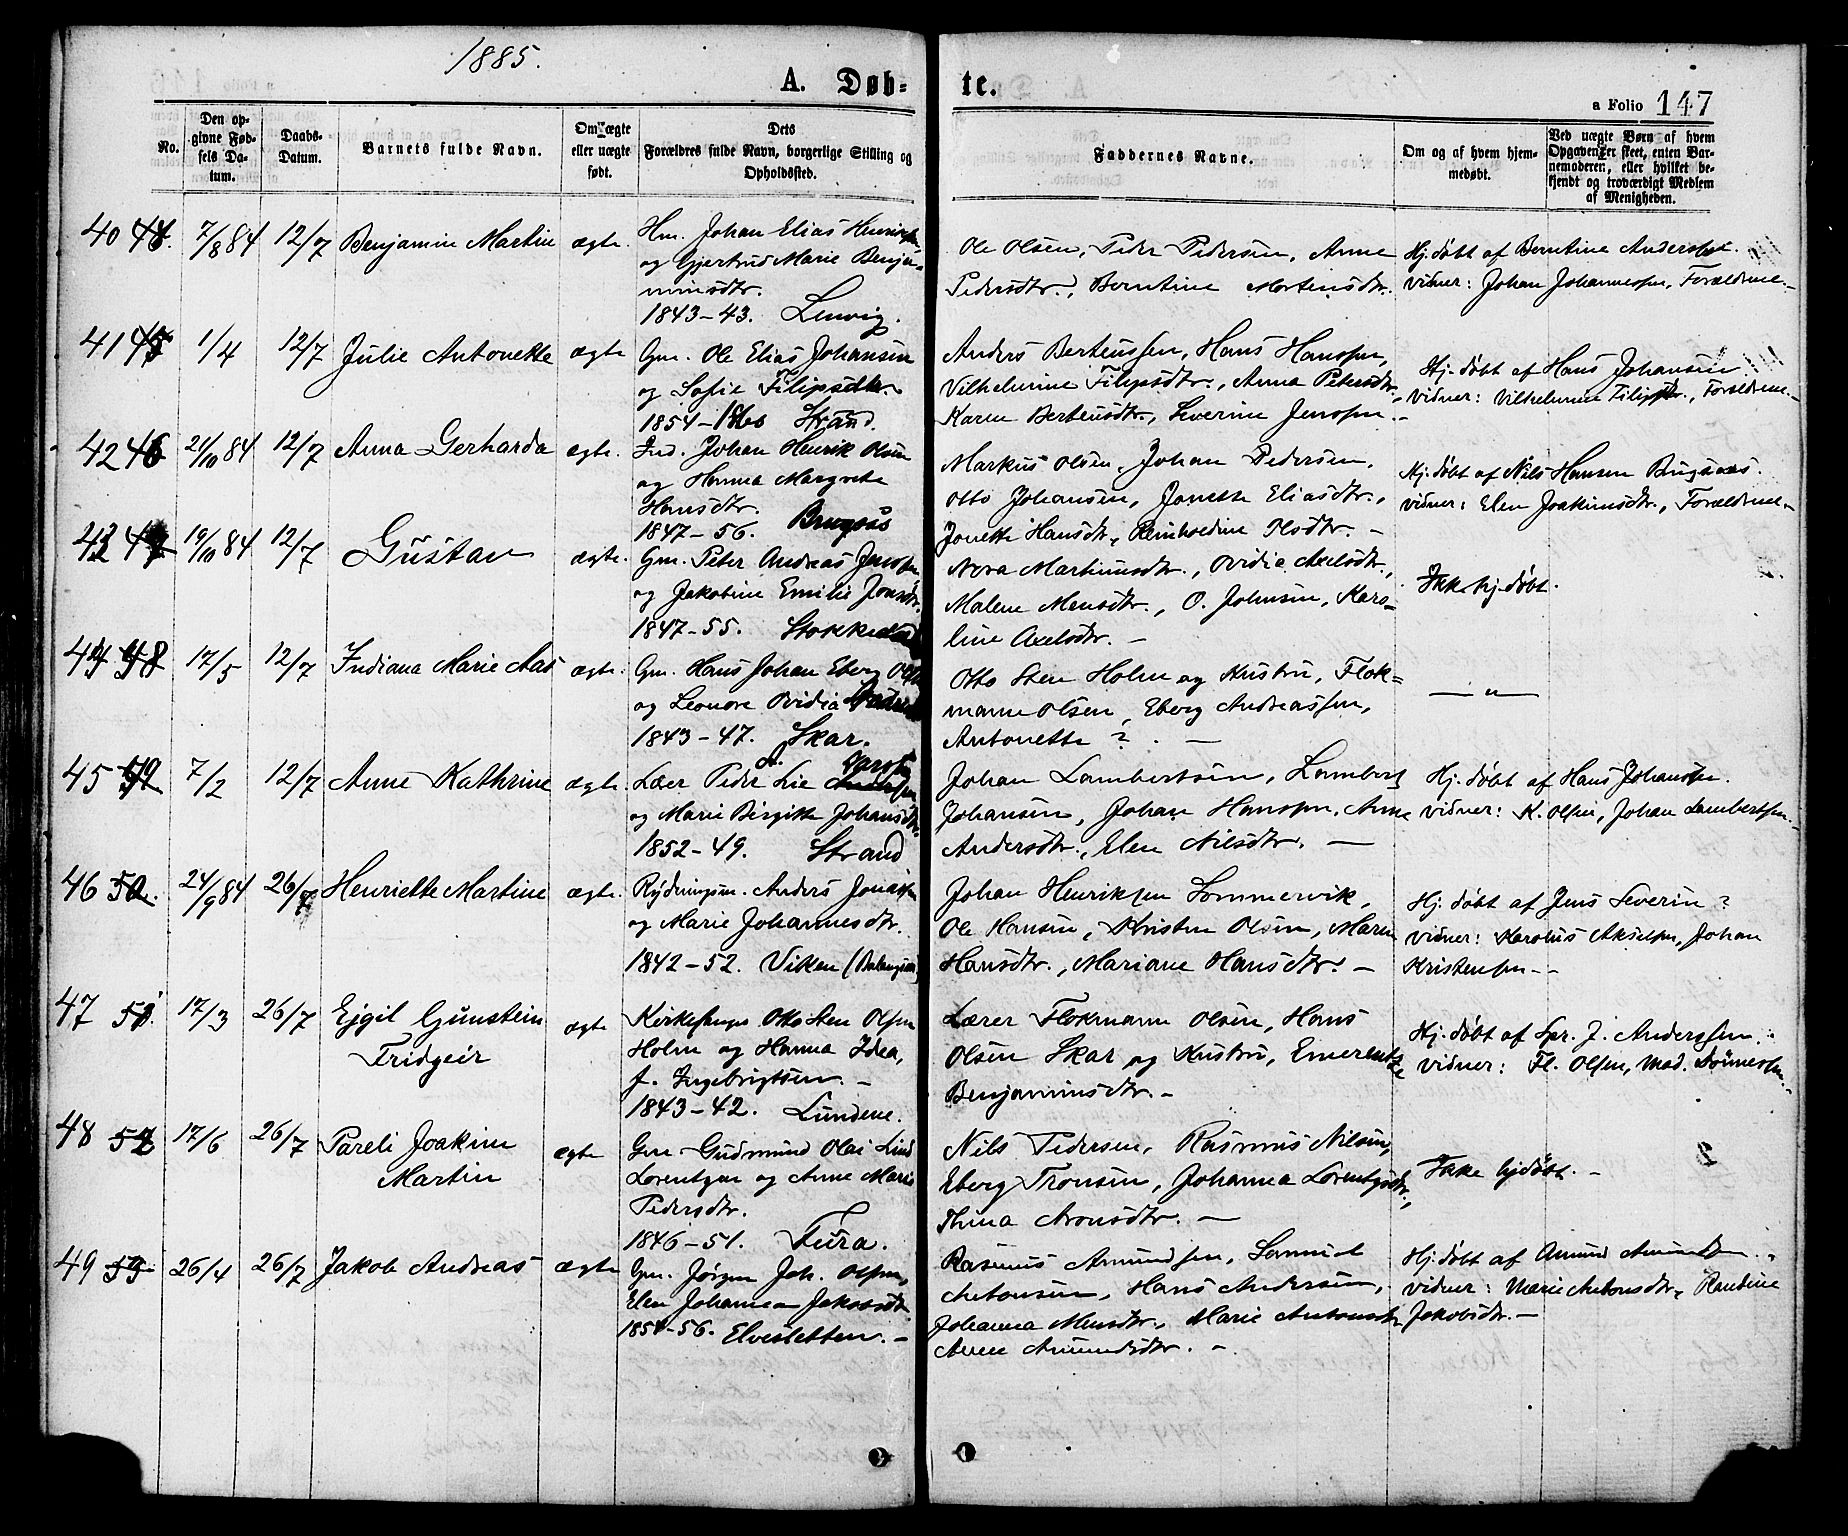 1885.
A. Døb-
te.
a Folio 147
No.
Den op-
givne Fød-
sels Da-
tum.
Daabs-
Datum.
Barnets fulde Navn.
Om ægte
eller uægte
født.
Dets
Forældres fulde Navn, borgerlige Stilling og
Opholdssted.
Faddernes Navne.
Om og af hvem hjem-
medøbt.
Ved uægte Børn af hvem
Opgaven er skeet, enten Bar-
nemoderen, eller hvilket be-
kjendt og troværdigt Medlem
af Menigheden.
40 7/8 84 12/7 Benjamin Martin ægte.
Hm. Johan Elias Henriksen
og Gjertrud Marie Benja-
minsdtr.
1843-43. Lenvig.
Ole Olsen, Peder Pedersen, Anne
Pedersdtr., Berntine Mortensdtr.
Hj. døbt af Berntine Anders
vidner: Johan Johannessen, Forældrene.-
41 45 1/4 12/7 Julie Antonette ægte
Gm. Ole Elias Johansen
og Sofie Filipsdtr.
1854- Strand.
Anders Berteussen, Hans Hanssen,
Vilhelmine Filipsdtr., Anna Petersdtr.,
Karen Berteusdtr., Severine Jenssen.-
Hj. døbt af Hans Johansen
vidner: Vilhelmine Filipsdtr., Forældrene.-
42 46 21/10 84 12/7 Anna Gerharda ægte.
Ind. Johan Henrik Olsen
og Hanna Margrete
Hansdtr.
1847-56. Brugsås
Markus Olsen, Johan Pedersen,
Otto Johansen, Jonette Eliasdtr.,
Jonette Hansdtr., Reinholdine Olsdtr. -
Hj. døbt af Nils Hansen Brugsaas.
vidner: Elen Joakimsdtr., Forældrene.-
43 47 19/10 84 12/7 Gustav ægte.
Gm. Peter Andreas Jenssen
og Jakobine Emilie Jonsdtr.
1847-55.
Nora Martinusdtr., Ovidia Axelsdtr.,
Malene Mensdtr., O. Johnsen, Karo-
line Axelsdtr. -
Ikke hj. døbt.
44 48 17/5 12/7 Indiana Marie Aas ægte.
Gm. Hans Johan Eberg Olsen
og Leonore Ovidia
1843-47. Skar.
Otto Sten Holm og Hustru, Flok=
mann Olsen, Eberg Andreassen,
Antonette ? . -
— " —
45 49 7/2 12/7 Anne Kathrine ægte.
Lær Peder Lie
og Marie Birgitte Johansdtr.
1852-49. Strand
Johan Lambertsen, Lambert
Johansen, Johan Hanssen, Anne
Andersdtr., Elen Nilsdtr. -
Hj. døbt af Hans Johansen.
vidner: K. Olsen, Johan Lambertsen.-
46 50. 24/9 84 26/7 Henriette Martine ægte.
Rydningsm. Anders Jonassen
og Marie Johannesdtr.
1842-52. Viken (Balangen)
Johan Henriksen Sommervik,
Ole Hansen, Kristen Olsen, Maren
Hansdtr., Mariane Hansdtr. -
Hj. døbt af Jens Severin ?
vidner: Karolus Akselsen, Johan
Kristensen --
47 51. 17/3 26/7 Ejgil Gunstein
Fridgeir
ægte
Kirkesanger Otto Sten Olsen
Holm og Hanna Idea,
f. Ingebrigtsen. -
1843-42. Lundene.
Lærer Flokmann Olsen, Hans
Olsen Skar og Hustru, Emerentze
Benjaminsdtr. -
Hj. døbt af Spr. J. Anderssen.
vidner: Fl. Olsen, Mad. Tønnessen.-
48 52 17/6 26/7 Pareli Joakim
Martin
ægte
Gm Gudmund Olai Lind
Lorentzen og Anne Marie
Pedersdtr.
1846-51. Fura.
Nils Pedersen, Rasmus Nilsen,
Eberg Tronsen, Johanna Lorentzdtr.,
Thina Aronsdtr. -
Ikke hjdøbt. -
49 53. 26/4 26/7 Jakob Andreas ægte
Gm. Jørgen Joh. Olsen,
Elen Johannea Jakobsdtr
1854-56. Elvesletten. -
Rasmus Amundsen, Samuel
Antonsen, Hans Andersen,
Johanna Mensdtr., Marie Antonsdtr
Anne Amundsdtr. -
Hj. døbt af Amund Amundsen.
vidner: Marie Antonsdtr., Randine
Jakobsdtr. -